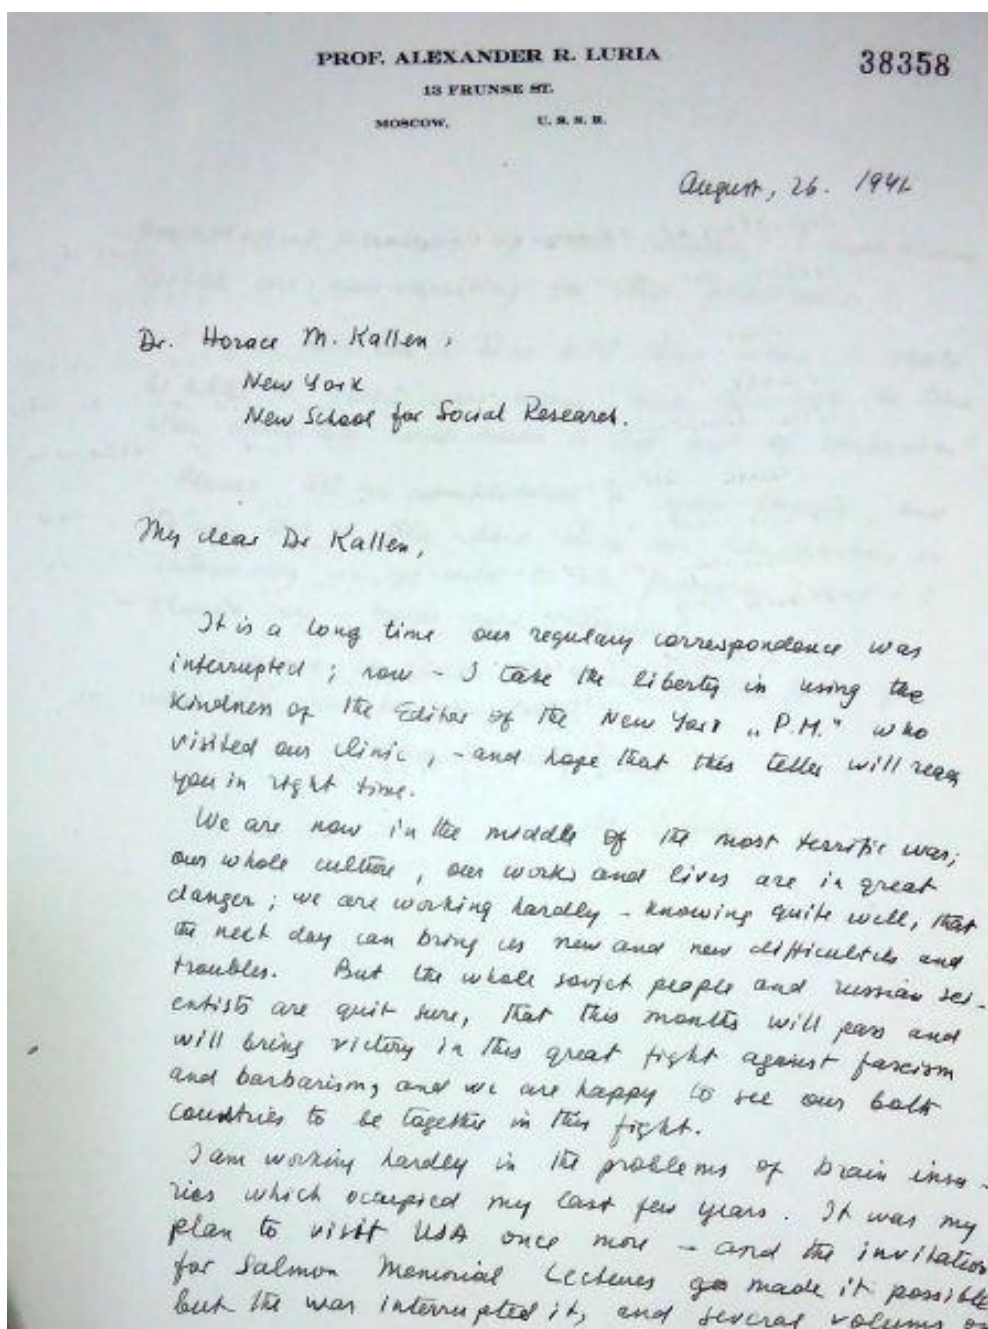 PROF. ALEXANDER R. LURIA
38358
13 FRUNSE ST.
MOSCOW, U. S. S. R.
August, 26. 1941
Dr. Horace M. Kallen,
New York
New School for Social Research.
My dear Dr Kallen,
It is a long time our regulary correspondence was
interrupted; now - I take the liberty in using the
kindness of the Editor of the New York „P.M." who
visited our clinic, - and hope that this letter will reach
you in right time.
We are now in the middle of the most terrific war;
our whole culture, our works and lives are in great
danger; we are working hardly - knowing quite well, that
the next day can bring us new and new difficulties and
troubles. But the whole soviet people and russian sci-
entists are quit sure, that this months will pass and
will bring victory in this great fight against fascism
and barbarism, and we are happy to see our both
countries to be together in this fight.
I am working hardly in the problems of brain inju-
ries which occupied my last few years. It was my
plan to visit USA once more - and the invitation
for Salmon Memorial Lectures made it possible
but the war interrupted it, and several volums